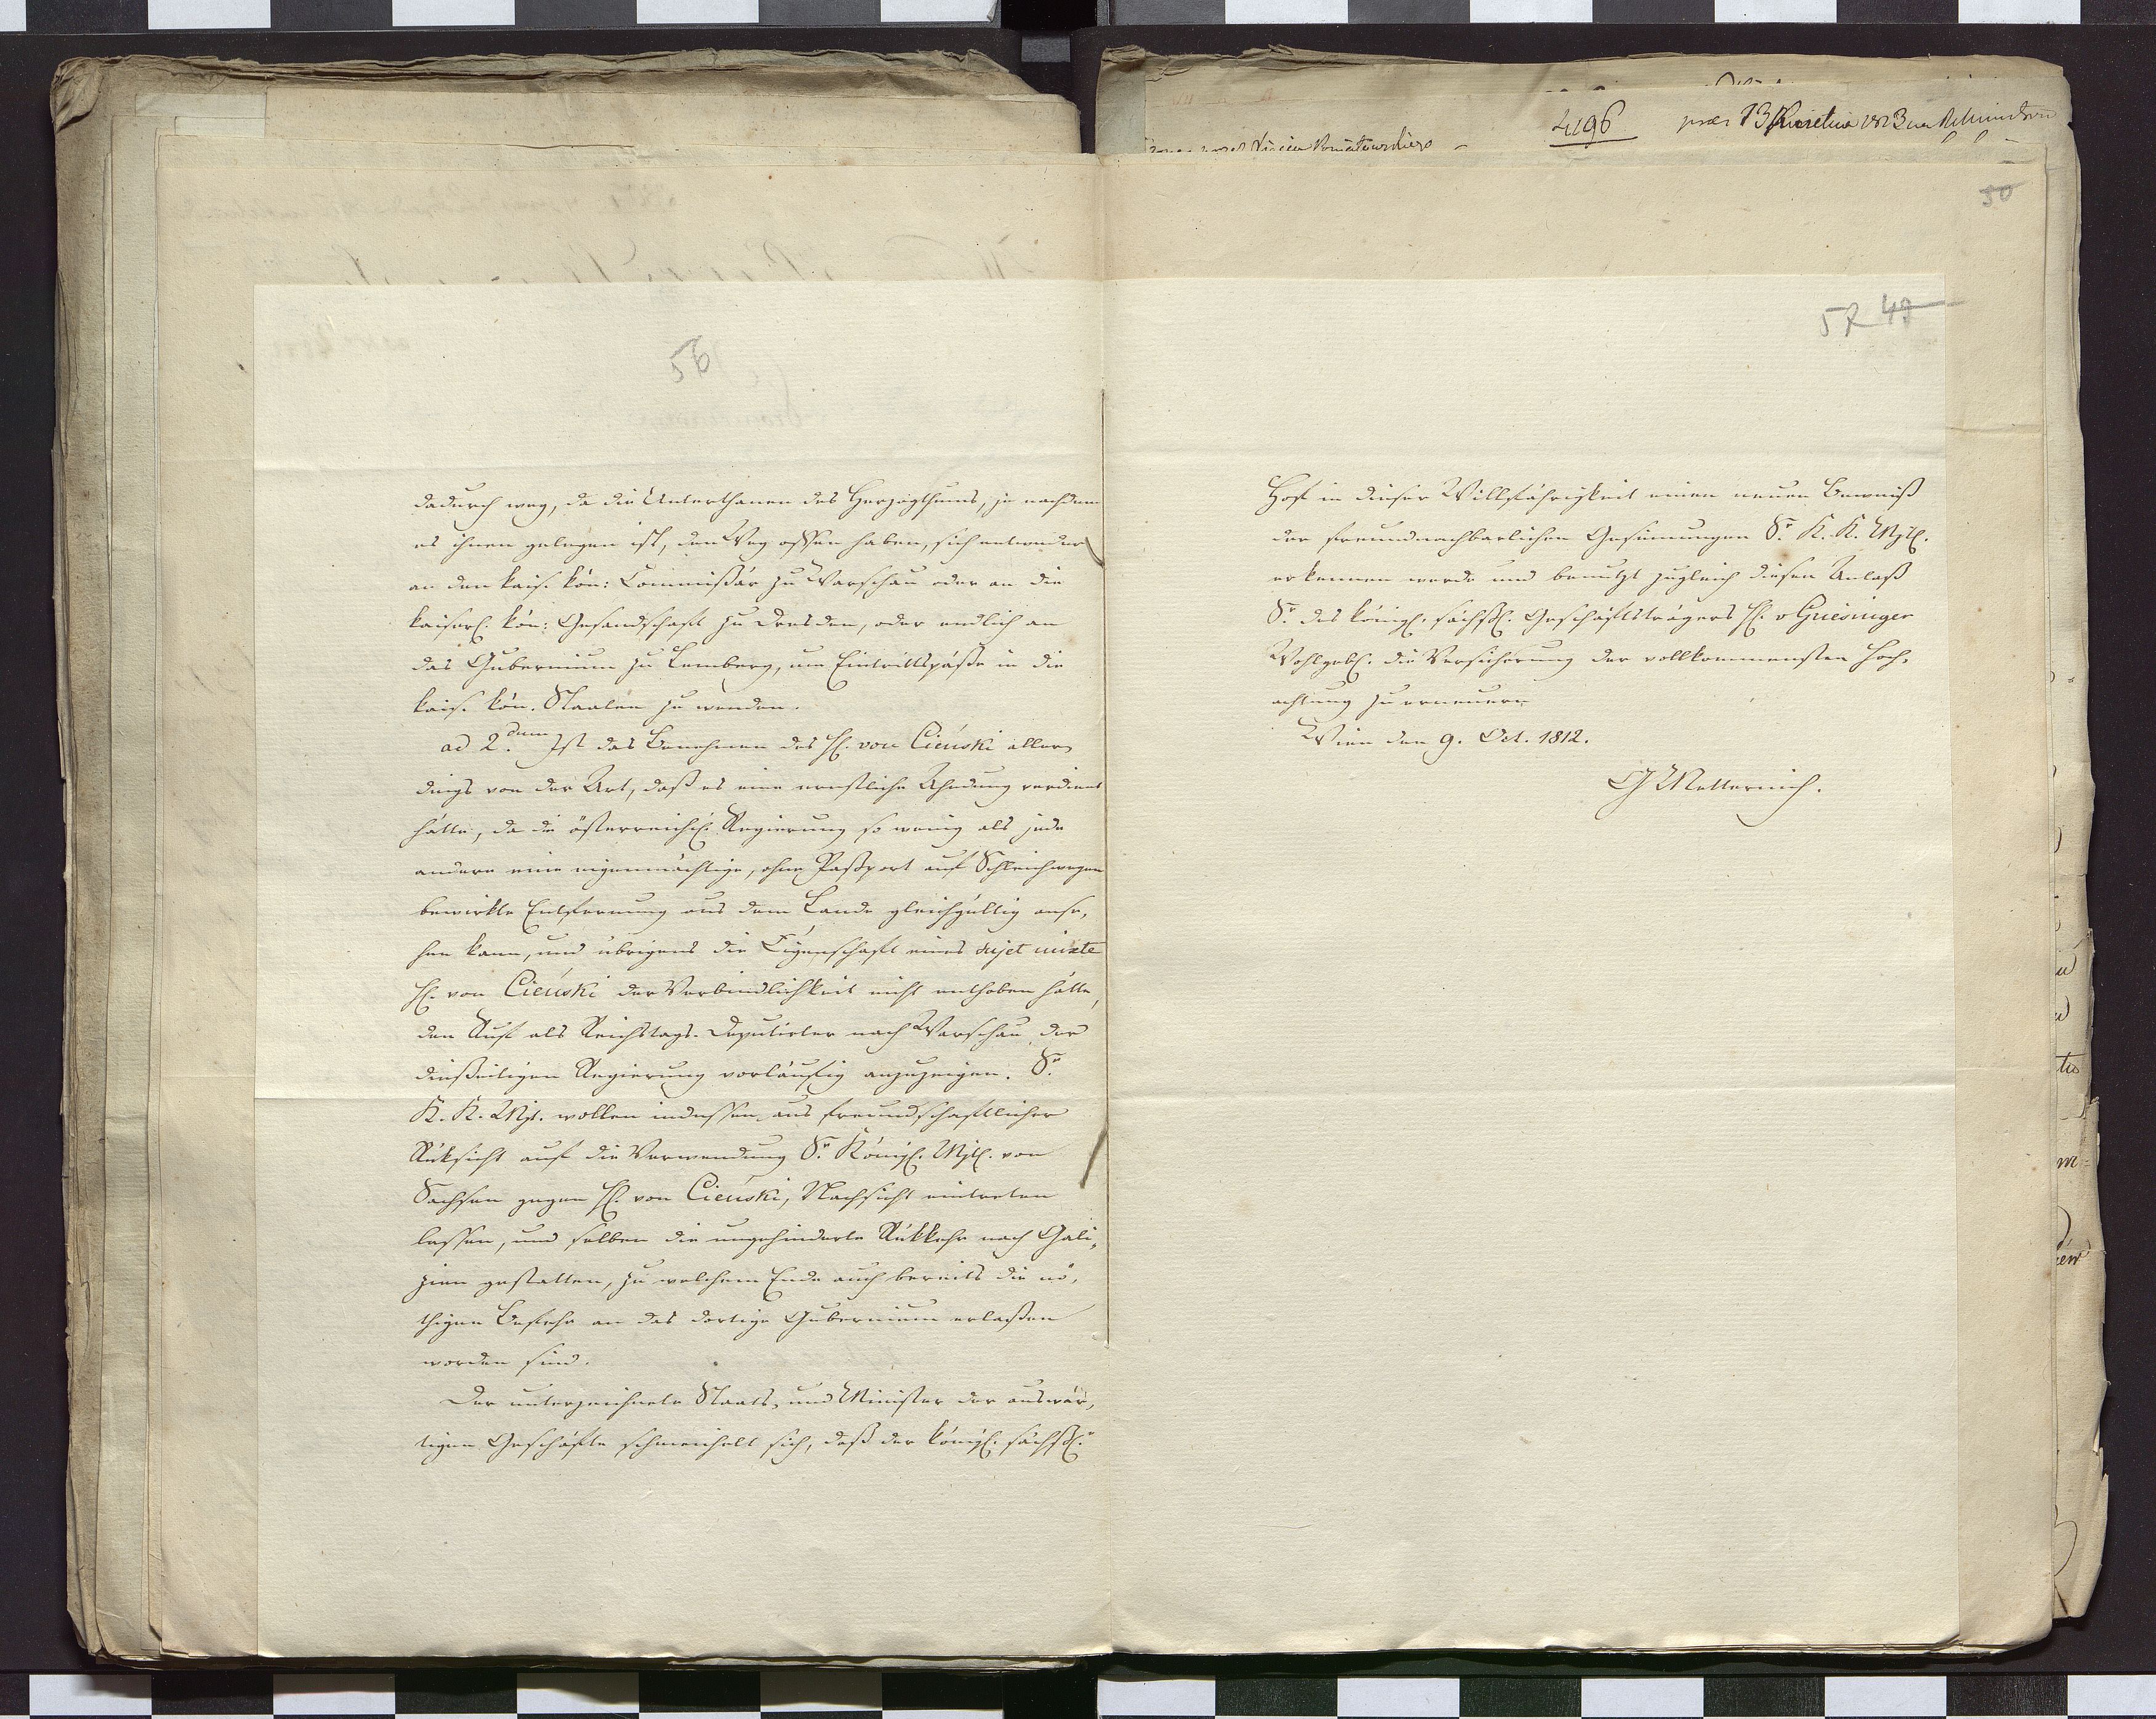 56
dadurch weg, da die Unterthanen des Herzogthums, je nachdem
es ihnen gelegen ist, den Weg offen haben, sich entweder
an den kais. kön: Commißär zu Warschau oder an die
kaiserl. kön: Gesandschaft zu Dresden, oder endlich an
das Gubernium zu Lemberg, um Eintrittspäße in die
kais. kön. Staaten zu wenden.
ad 2.dum Ist das Benehmen des H. von Cieński aller
dings von der Art, daß es eine ernstliche Ahndung verdient
hätte, da die österreich. Regierung so wenig als jede
andere eine eigenmächtige, ohne Paßport auf Schleichwegen
bewirkte Entfernung aus dem Lande gleichgültig anse,
hen kann, und übrigens die Eigenschaft eines sujet mixte
H. von Cieński der Verbindlichkeit nicht enthoben hätte,
den Ruf als Reichstags-Deputirter nach Warschau der
dießeitigen Regierung vorläufig anzuzeigen. Sr.
K. K. Mjt. wollen indessen aus freundschaftlicher
Rüksicht auf die Verwendung Sr. Königl. Mjt. von
Sachsen gegen H. von Cieński, Nachsicht eintreten
lassen, und selben die ungehinderte Rükkehr nach Gali,
zien gestatten, zu welchem Ende auch bereits die nö,
thigen Befehe an das dortige Gubernium erlaßen
worden sind.
Der unterzeichnete Staats- und Minister der auswär,
tigen Geschäfte schmeichelt sich, daß der königl. sächß.
4196
50
57 49
Hof in dieser Willfährigkeit einen neuen Beweiß
der freundnachbarlichen Gesinnungen Sr. K. K. Mjt.
erkennen werde und benutzt zugleich diesen Anlaß
Sr. des königl. sächß. Geschäftsträgers H. v Griesinger
Wohlgeb. die Versicherung der vollkommensten Hoch,
achtung zu erneuern
Wien den 9. Oct. 1812.
G Metternich.